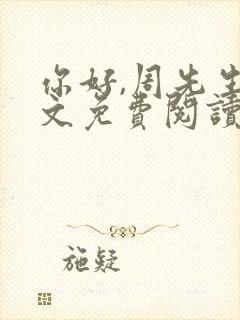 你好,周先生
文免費閱讀
施疑